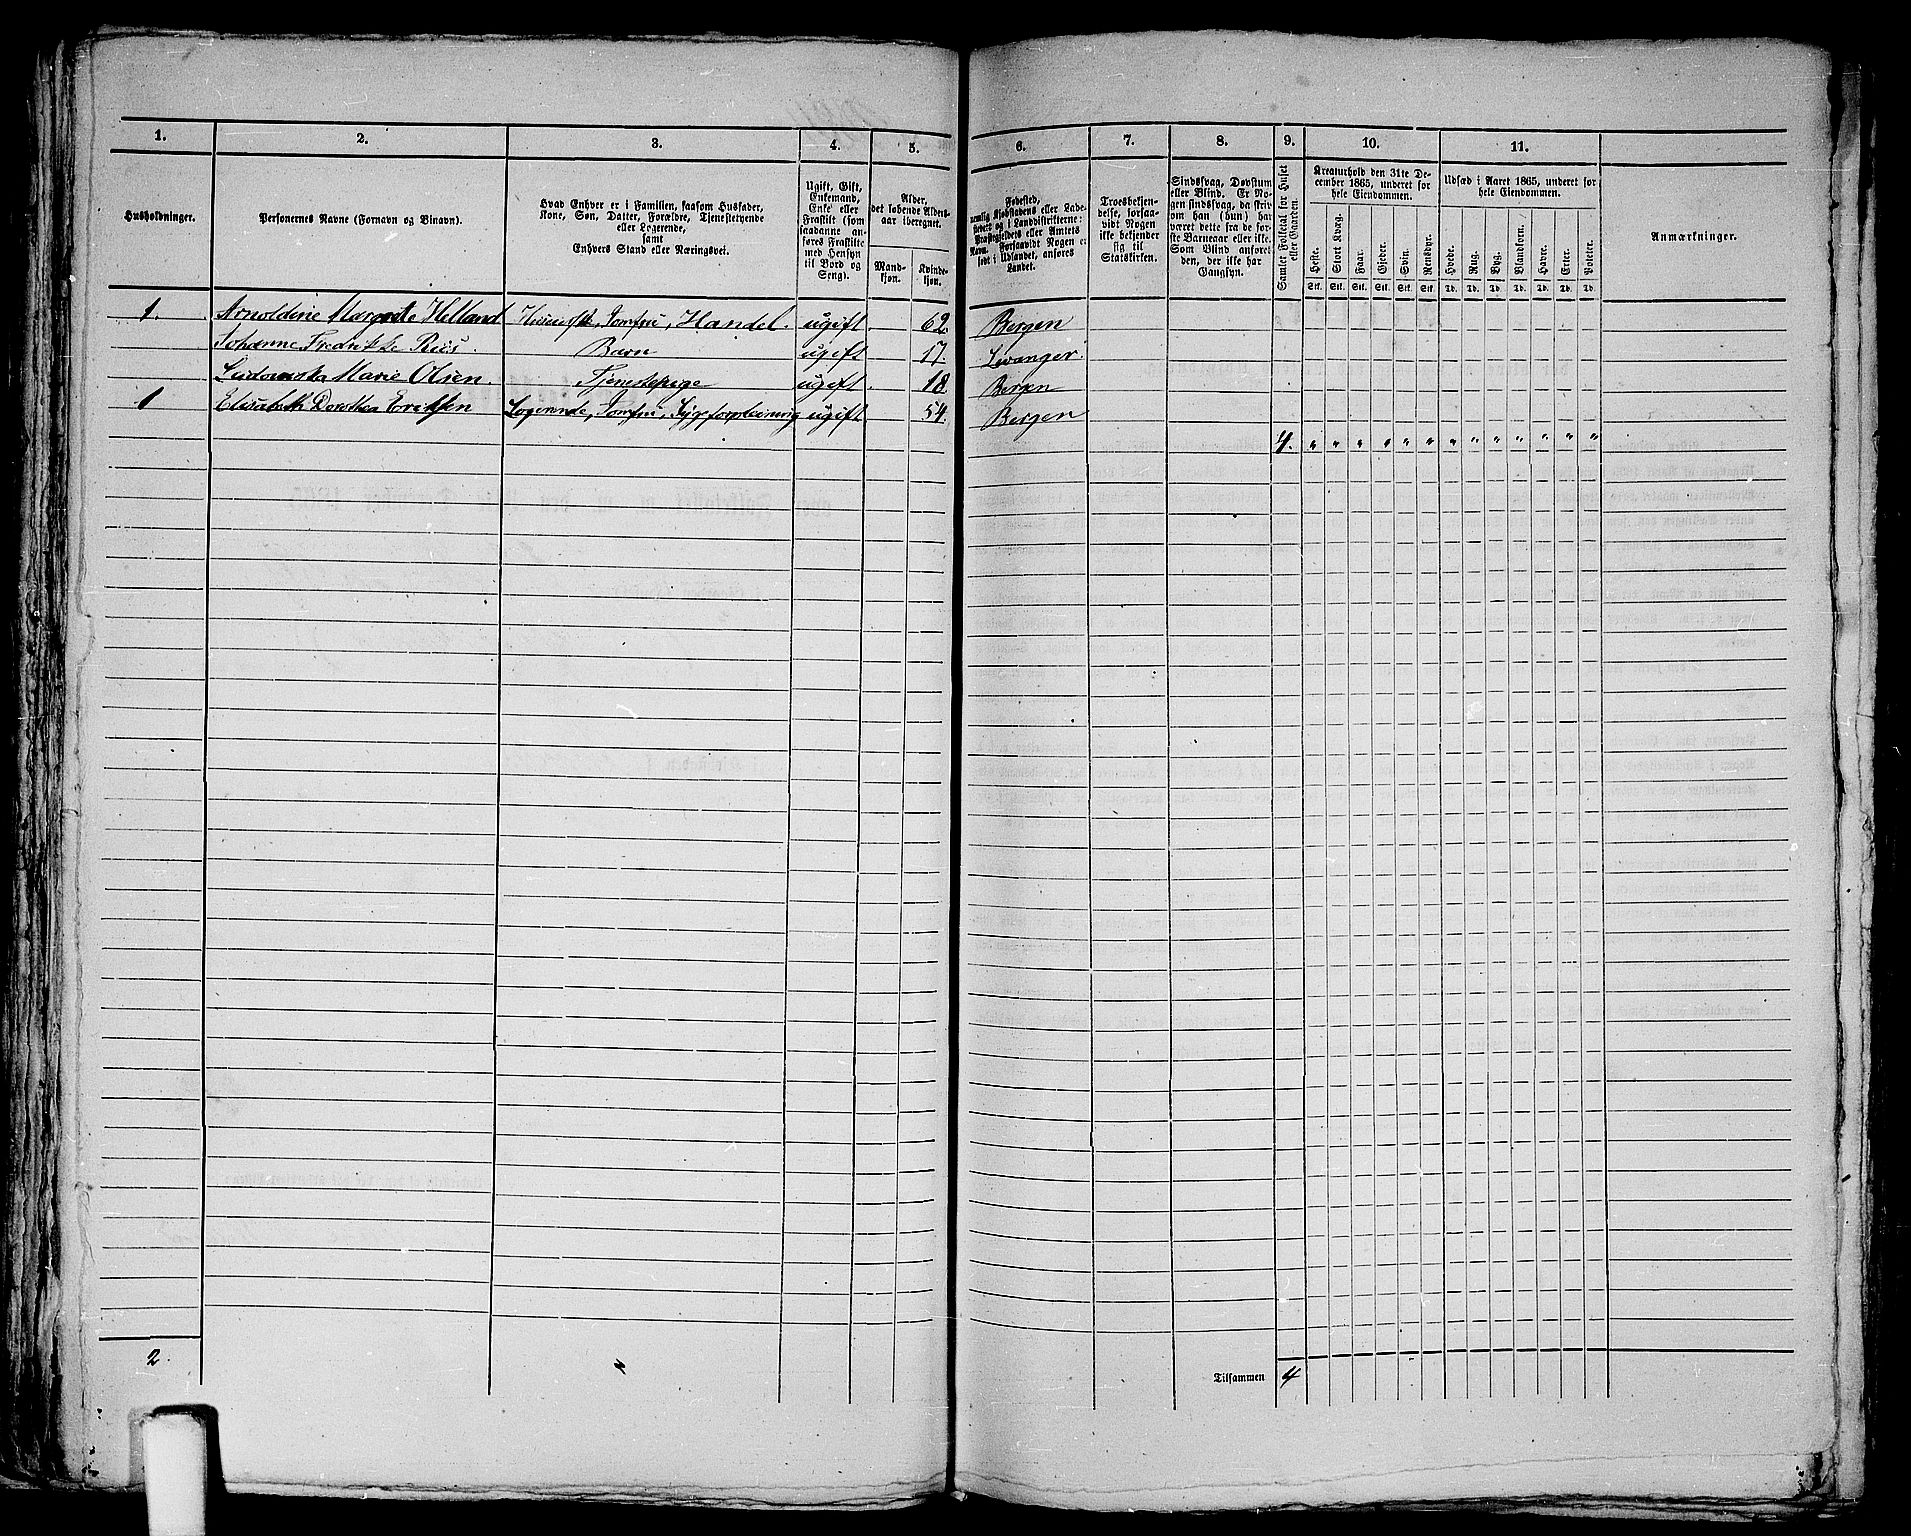 1. 2. 3. 4. 5. 6. 7. 8. 9. 10. 11.
Husholdninger.
Personernes Navne (Fornavn og Binavn).
Hvad Enhver er i Familien, saasom Husfader,
Kone, Søn, Datter, Forældre, Tjenestetyende
eller Logerende,
samt
Enhvers Stand eller Næringsvei.
Ugift, Gift,
Enkemand,
Enke eller
Fraskilt (som
saadanne an-
føres Fraskilte
med Hensyn
til Bord og
Seng).
Alder,
det løbende Alders-
aar iberegnet.
Mand-
kjøn.
Kvinde-
kjøn.
Fødested,
nemlig Kjøbstadens eller Lade-
stedets og i Landdistrikterne:
Præstegjeldets eller Amtets
Navn. Forsaavidt Nogen er
født i Udlandet, anføres
Landet.
Troesbekjen-
delse, forsaa-
vidt Nogen
ikke bekjender
sig til
Statskirken.
Sindssvag, Døvstum
eller Blind. Er No-
gen sindssvag, da skriv
om han (hun) har
været dette fra de før-
ste Barneaar eller ikke.
Som Blind anføres
den, der ikke har
Gangsyn.
Samlet Folketal for Huset
eller Gaarden.
Kreaturhold den 31te De-
cember 1865, underet for
hele Eiendommen.
Heste. Stort Kvæg. Faar. Gjeder. Svin. Rensdyr.
Stk. Stk. Stk. Stk. Stk. Stk.
Udsæd i Aaret 1865, underet for
hele Eiendommen.
Hvede. Rug. Byg. Blandkorn. Havre. Erter. Poteter.
Td. Td. Td. Td. Td. Td. Td.
Anmærkninger.
1. Arnoldine Margrete Helland Jomfru, Handel. ugift 62. Bergen
Johanne Fredrikke Riis. Barn ugift 17. Levanger
Ludovika Marie Olsen. Tjenestepige ugift 18. Bergen
1 Elisabeth Dorothea Eriksen Logerende, Jomfru, ugift 54. Bergen
4. " " " " " " " " " " " " "
2.
Tilsammen 4